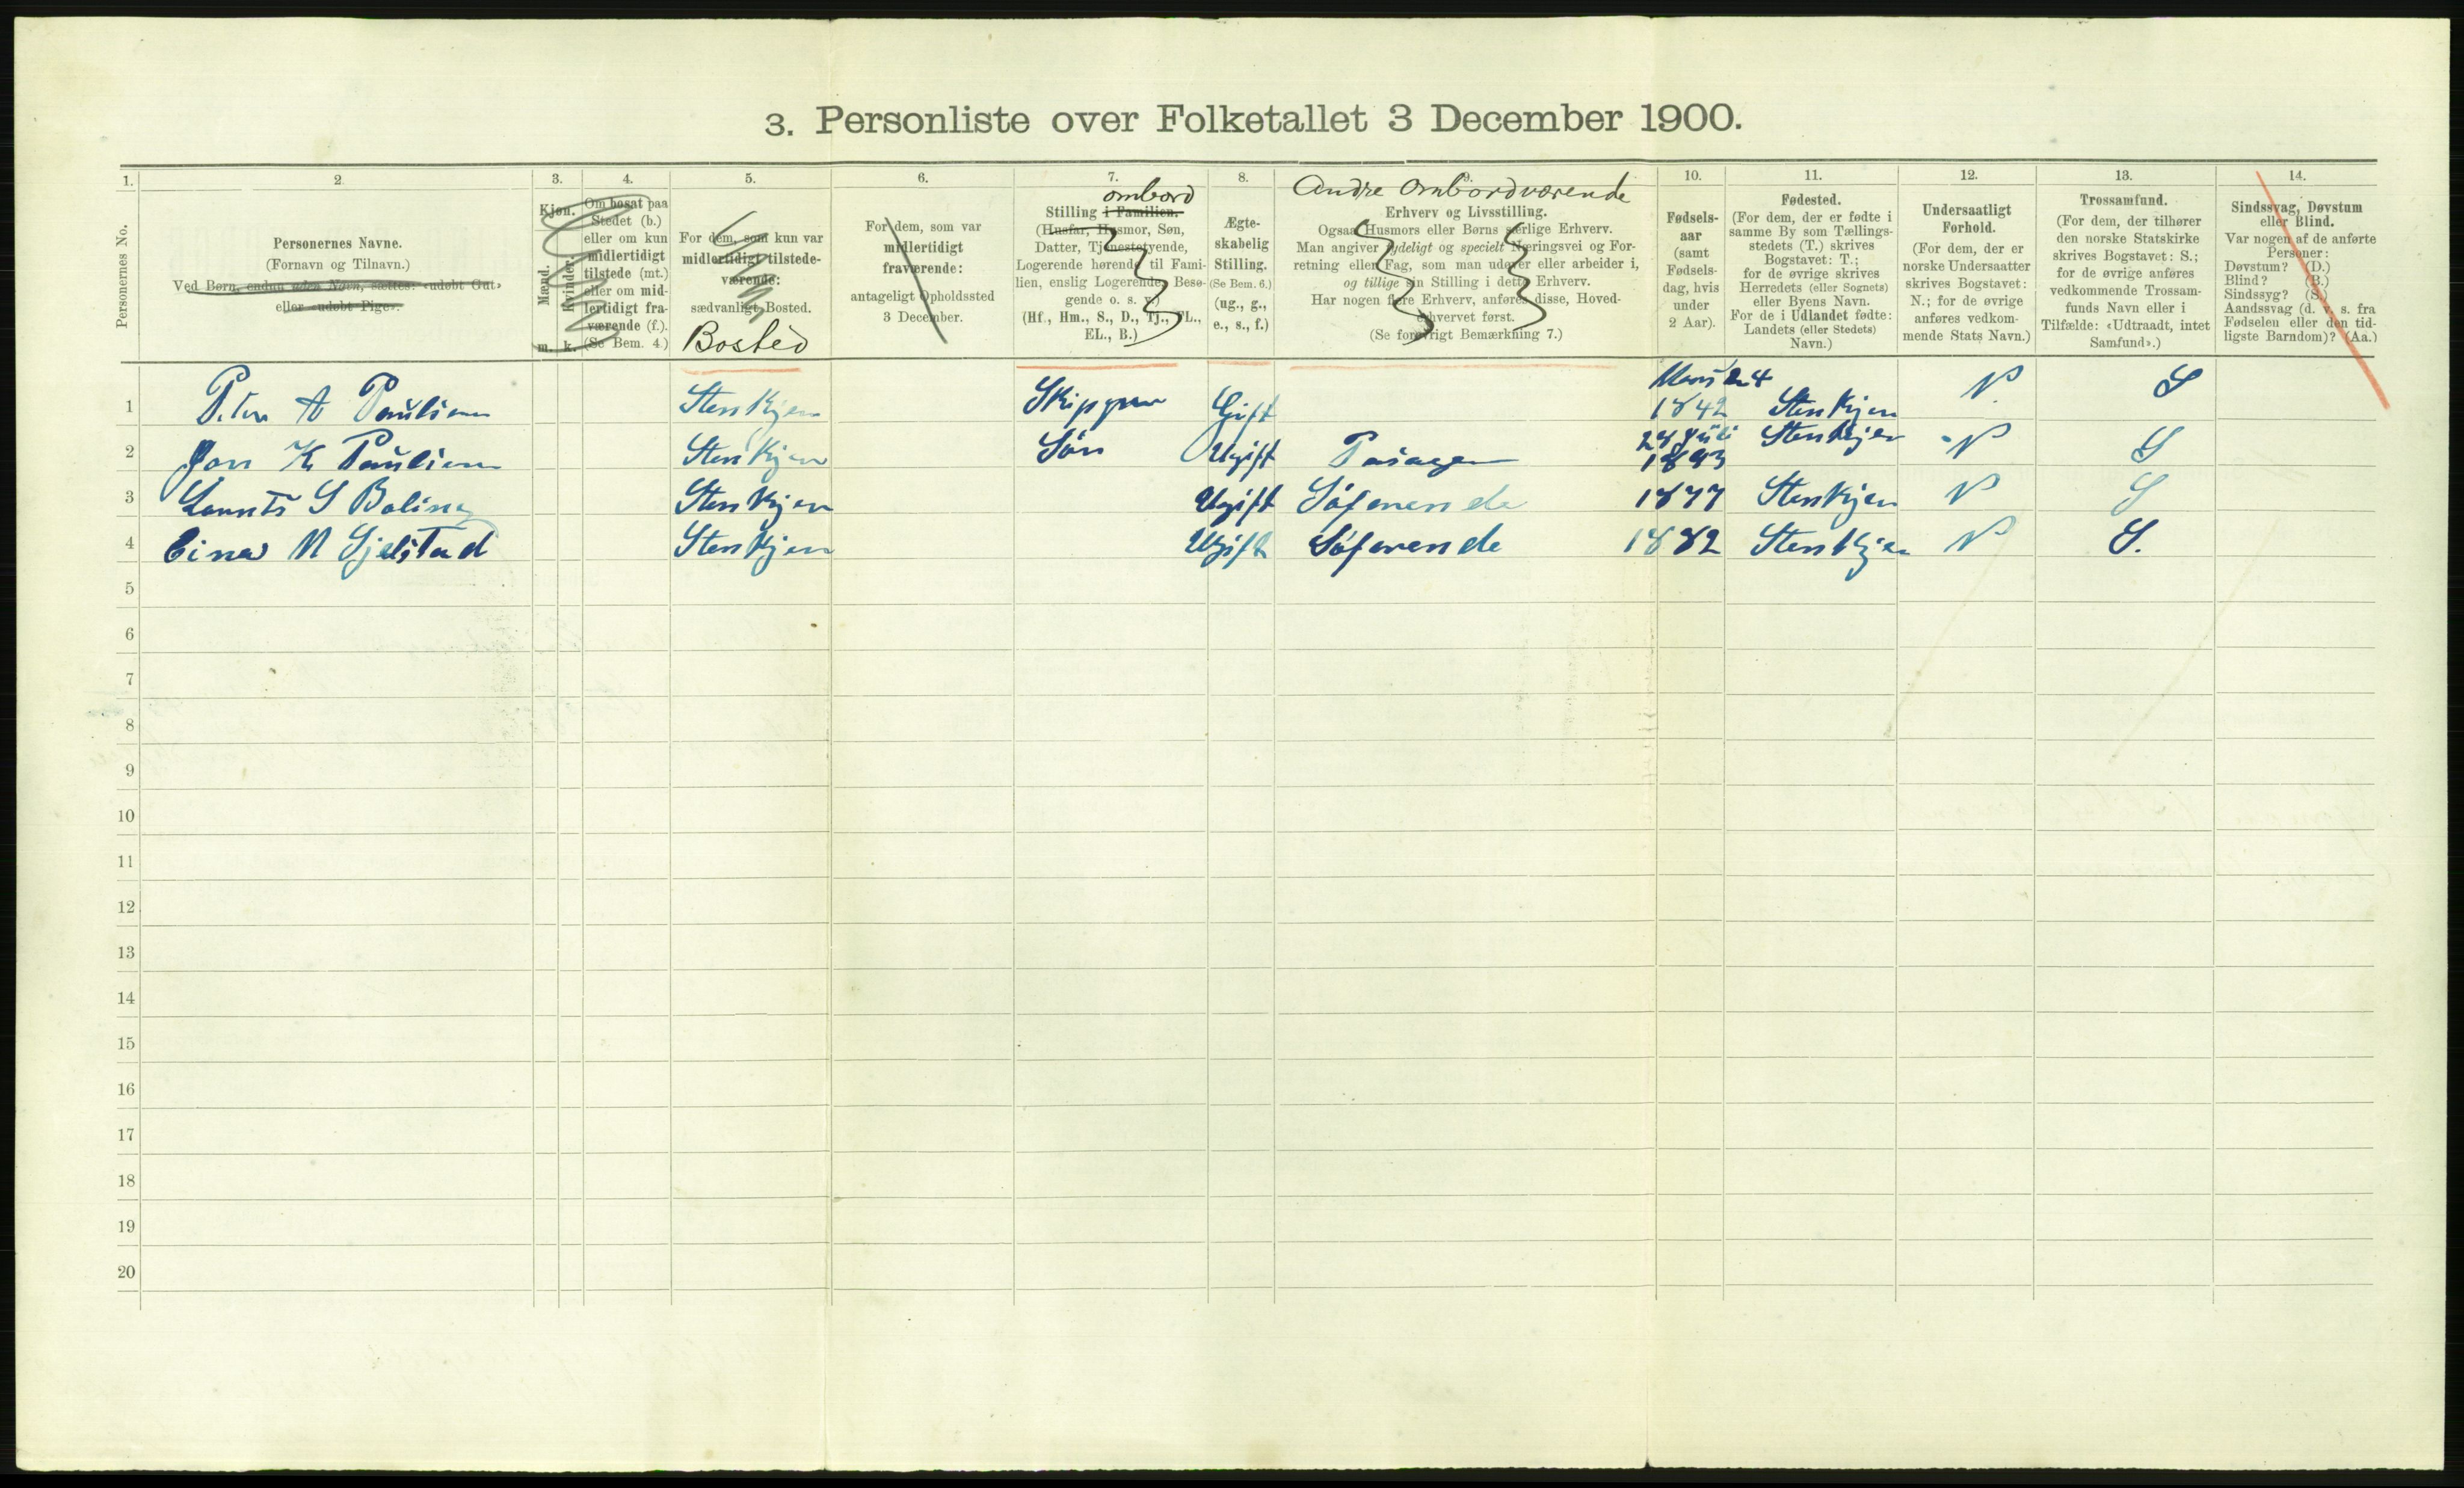 3. Personliste over Folketallet 3 December 1900.
1. 2. 3. 4. 5. 6. 7. 8. 9. 10. 11. 12. 13. 14.
Personernes No.
Personernes Navne.
(Fornavn og Tilnavn.)
Ved Børn, endnu uden Navn, sættes: «udøbt Gut»
eller «udøbt Pige».
Kjøn.
Mænd.
Kvinder.
m. k.
Om bosat paa
Stedet (b.)
eller om kun
midlertidigt
tilstede (mt.)
eller om mid-
lertidigt fra-
værende (f.).
(Se Bem. 4.)
For dem, som kun var
midlertidigt tilstede-
værende:
sædvanligt Bosted.
Bosted
For dem, som var
midlertidigt
fraværende:
antageligt Opholdssted
3 December.
ombord
Stilling i Familien.
(Husfar, Husmor, Søn,
Datter, Tjenestetyende,
Logerende hørende til Fami-
lien, enslig Logerende, Besø-
gende o. s. v.)
(Hf., Hm., S., D., Tj., FL.,
EL., B.)
Ægte-
skabelig
Stilling.
(Se Bem. 6.)
(ug., g.,
e., s., f.)
Andre Ombordværende
Erhverv og Livsstilling.
Ogsaa Husmors eller Børns særlige Erhverv.
Man angiver tydeligt og specielt Næringsvei og For-
retning eller Fag, som man udøver eller arbeider i,
og tillige sin Stilling i dette Erhverv.
Har nogen flere Erhverv, anføres disse, Hoved-
erhvervet først.
(Se forøvrigt Bemærkning 7.)
Fødsels-
aar
(samt
Fødsels-
dag, hvis
under
2 Aar).
Fødested.
(For dem, der er fødte i
samme By som Tællings-
stedets (T.) skrives
Bogstavet: T.;
for de øvrige skrives
Herredets (eller Sognets)
eller Byens Navn.
For de i Udlandet fødte:
Landets (eller Stedets)
Navn.)
Undersaatligt
Forhold.
(For dem, der er
norske Undersaatter
skrives Bogstavet:
N.; for de øvrige
anføres vedkom-
mende Stats Navn.)
Trossamfund.
(For dem, der tilhører
den norske Statskirke
skrives Bogstavet: S.;
for de øvrige anføres
vedkommende Trossam-
funds Navn eller i
Tilfælde: «Udtraadt, intet
Samfund».)
Sindssvag, Døvstum
eller Blind.
Var nogen af de anførte
Personer:
Døvstum? (D.)
Blind? (B.)
Sindssyg? (S.)
Aandssvag (d. v. s. fra
Fødselen eller den tid-
ligste Barndom)? (Aa.)
1 Peter A Paulsen Stenkjer Skipper Gift 24 1842 Stenkjer N. S
2 Jon K Paulsen Stenkjer Søn Ugift 24 Juli 1893 Stenkjer N S
3 S Stenkjer Ugift Søfarende 1877 Stenkjer N S
4 Einar M Stenkjer Ugift Søfarende 1882 Stenkjer N S.
5
6
7
8
9
10
11
12
13
14
15
16
17
18
19
20